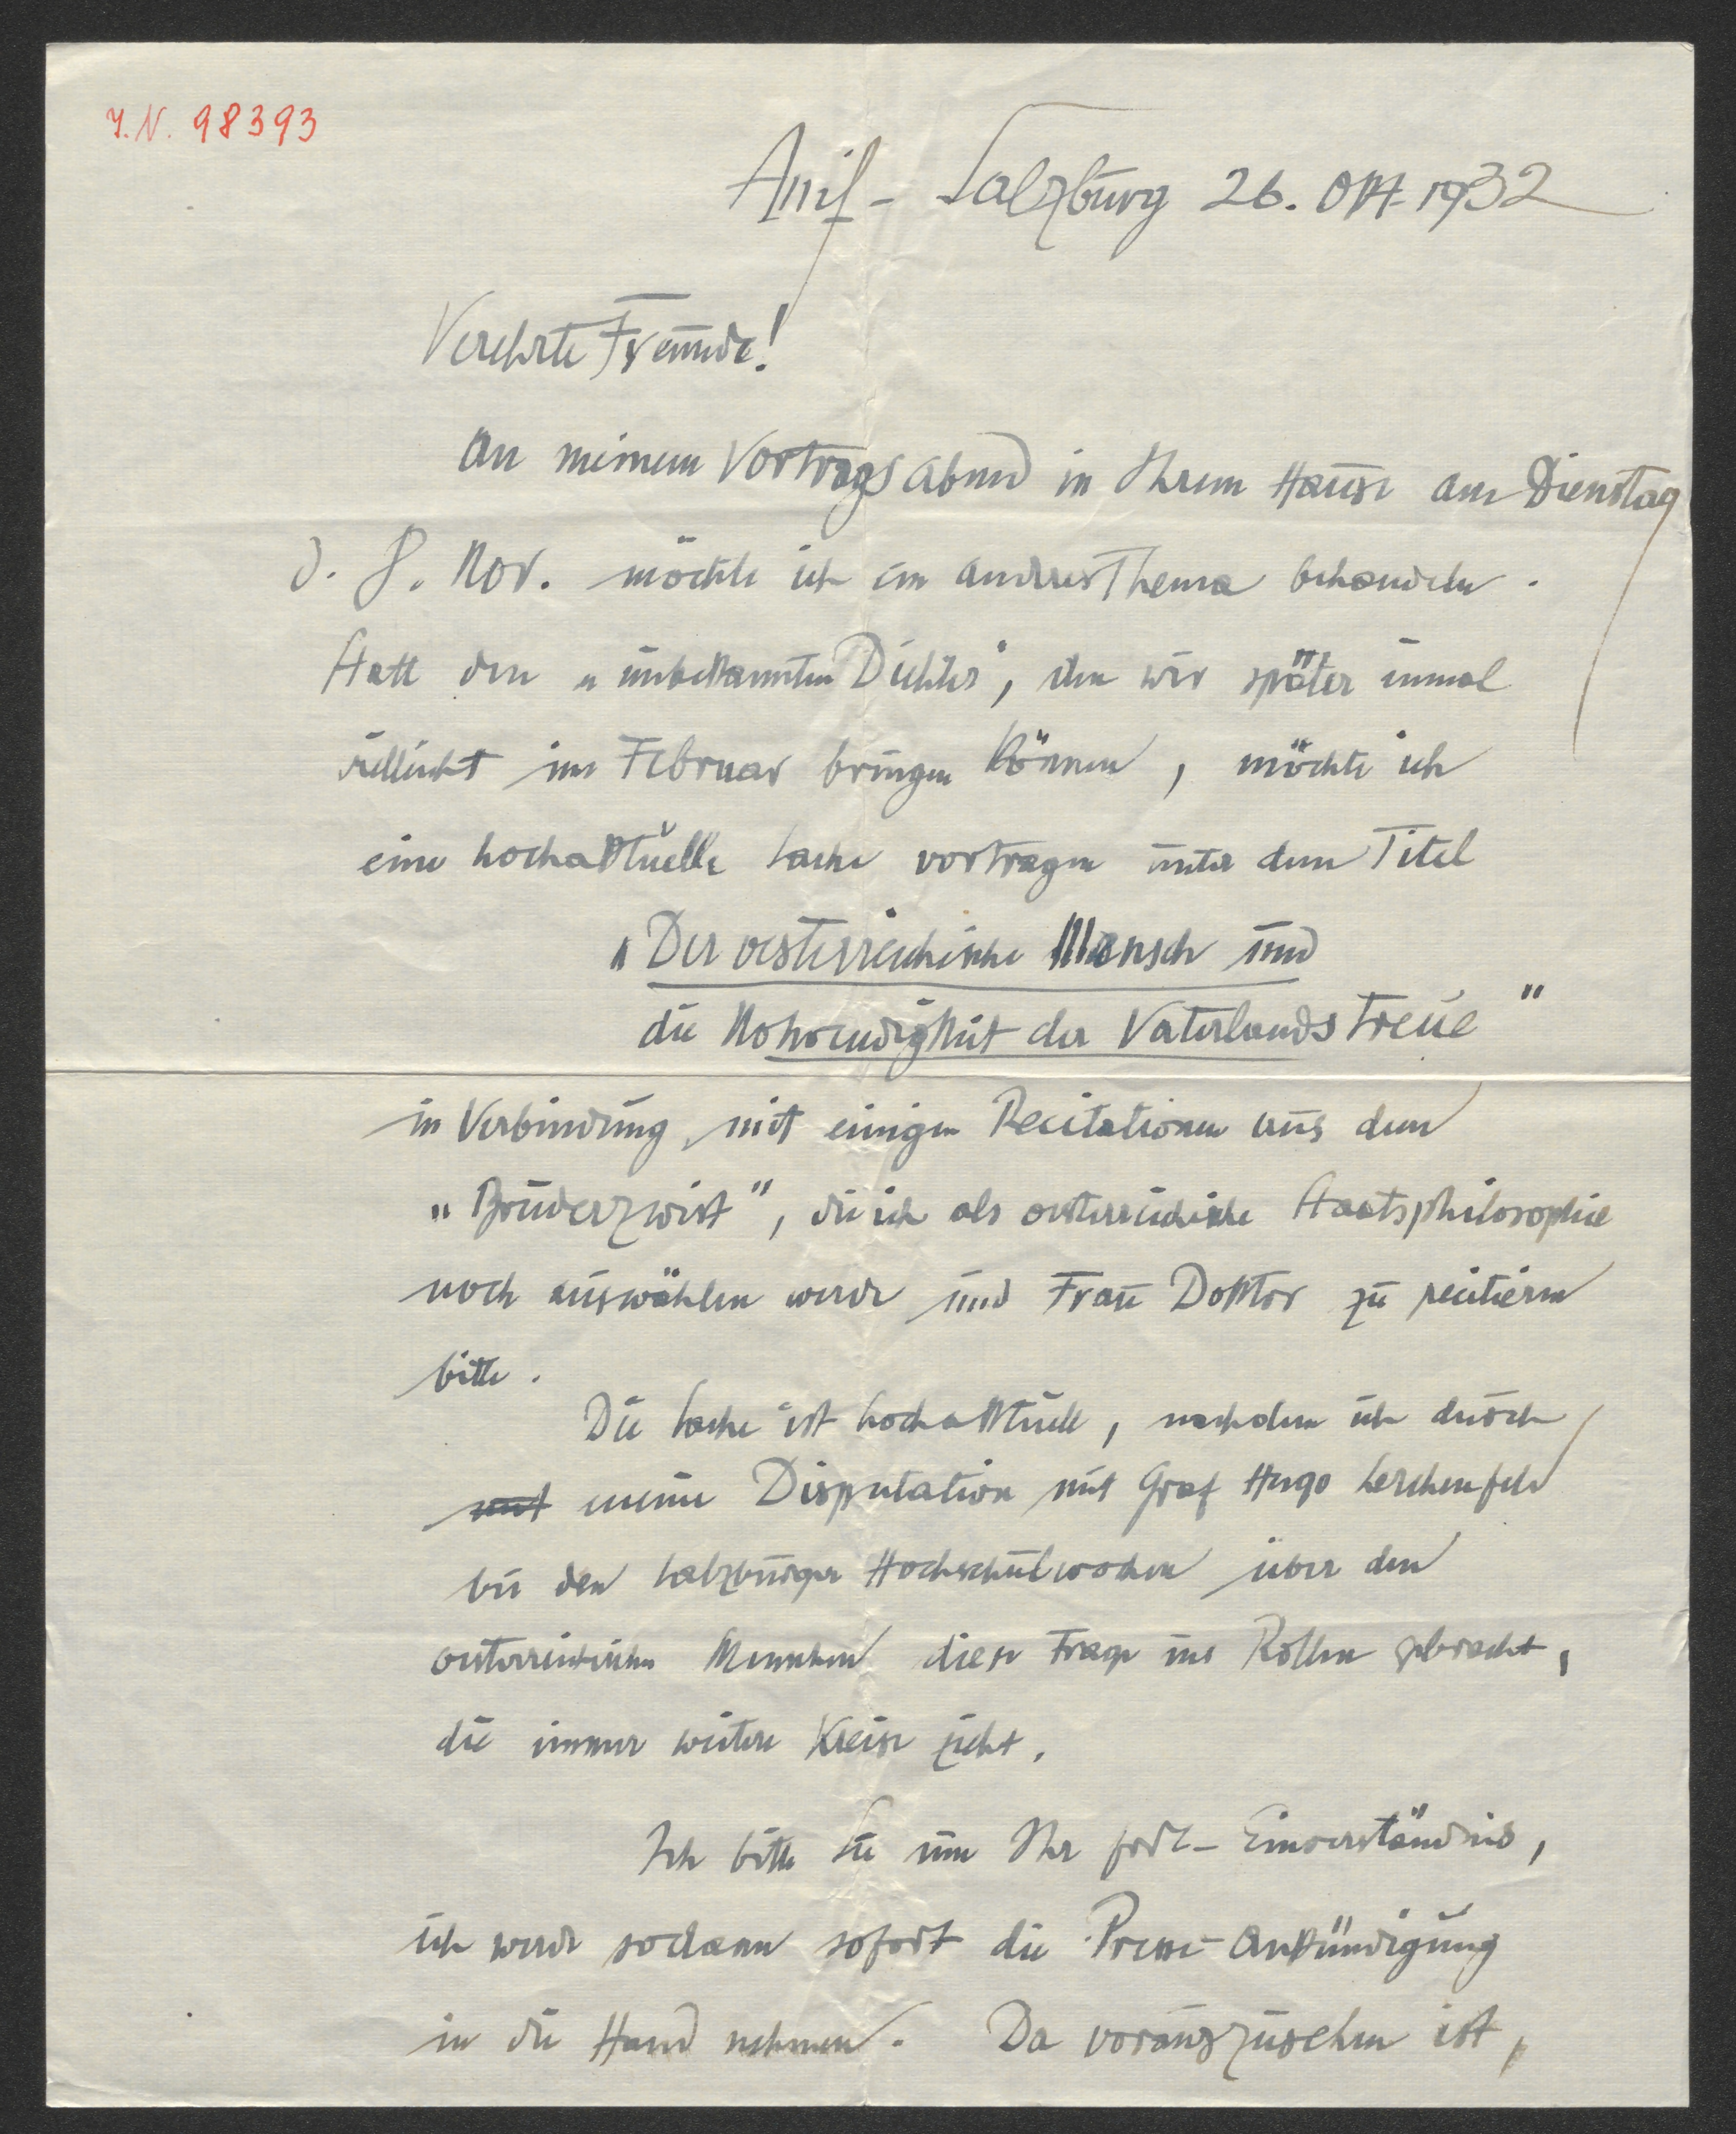 I.N. 98393
Anif - Salzburg 26. Okt. 1932
Verehrte Freunde!
An meinem Vortragsabend in Ihrem Hause am Dienstag
d. 8. Nov. möchte ich ein anderes Thema behandeln.
Statt den „unbekannten Dichter", den wir später einmal
vielleicht im Februar bringen können, möchte ich
eine hochaktuelle Sache vortragen unter dem Titel
„Der oesterreichische Mensch und
die Notwendigkeit der Vaterlandstreue"
in Verbindung mit einigen Recitationen aus dem
„Bruderzwist", die ich als oesterreichische Staatsphilosophie
noch auswählen werde und Frau Doktor zu recitieren
bitte.
Die Sache ist hochaktuell, nachdem ich durch
mit meine Disputation mit Graf Hugo Lerchenfeld
bei den Salzburger Hochschulwochen über den
oesterreichischen Menschen diese Frage ins Rollen gebracht,
die immer weitere Kreise zieht.
Ich bitte Sie um Ihr frdl- Einverständnis,
ich werde sodann sofort die Presse-Ankündigung
in die Hand nehmen. Da vorauszusehen ist,